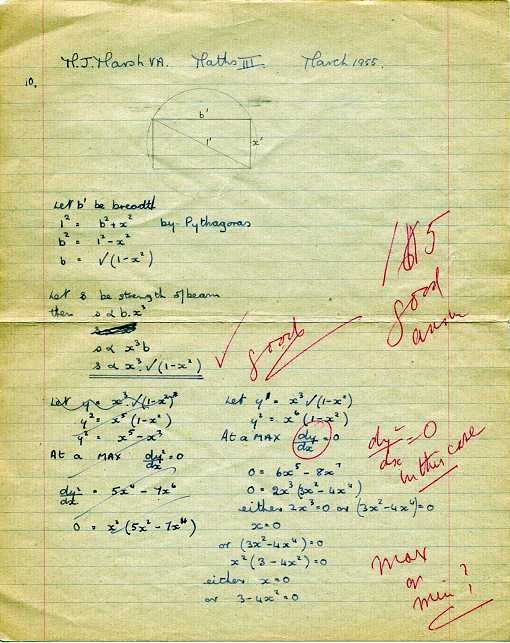 M.J. Marsh VA. Maths III March 1955.
10.
b'
1'
x'
Let b' be breadth
1² = b² + x² by Pythagoras
b² = 1² - x²
b = √(1-x²)
Let s be strength of beam
then s ∝ b.x³
s ∝ x³b
s ∝ x³.√(1-x²)
good
15
good
Let y = x³.√(1-x²)
y² = x⁵(1-x²)
y² = x⁵ - x⁷
At a MAX dy²/dx = 0
dy²/dx = 5x⁴ - 7x⁶
0 = x²(5x² - 7x⁴)
Let y = x³√(1-x²)
y² = x⁶(1-x²)
At a MAX dy/dx = 0
0 = 6x⁵ - 8x⁷
0 = 2x³(3x² - 4x⁴)
either 2x³ = 0 or (3x² - 4x⁴) = 0
x = 0
or (3x² - 4x⁴) = 0
x²(3 - 4x²) = 0
either x = 0
or 3 - 4x² = 0
dy²/dx = 0
in this case
max
or
min?